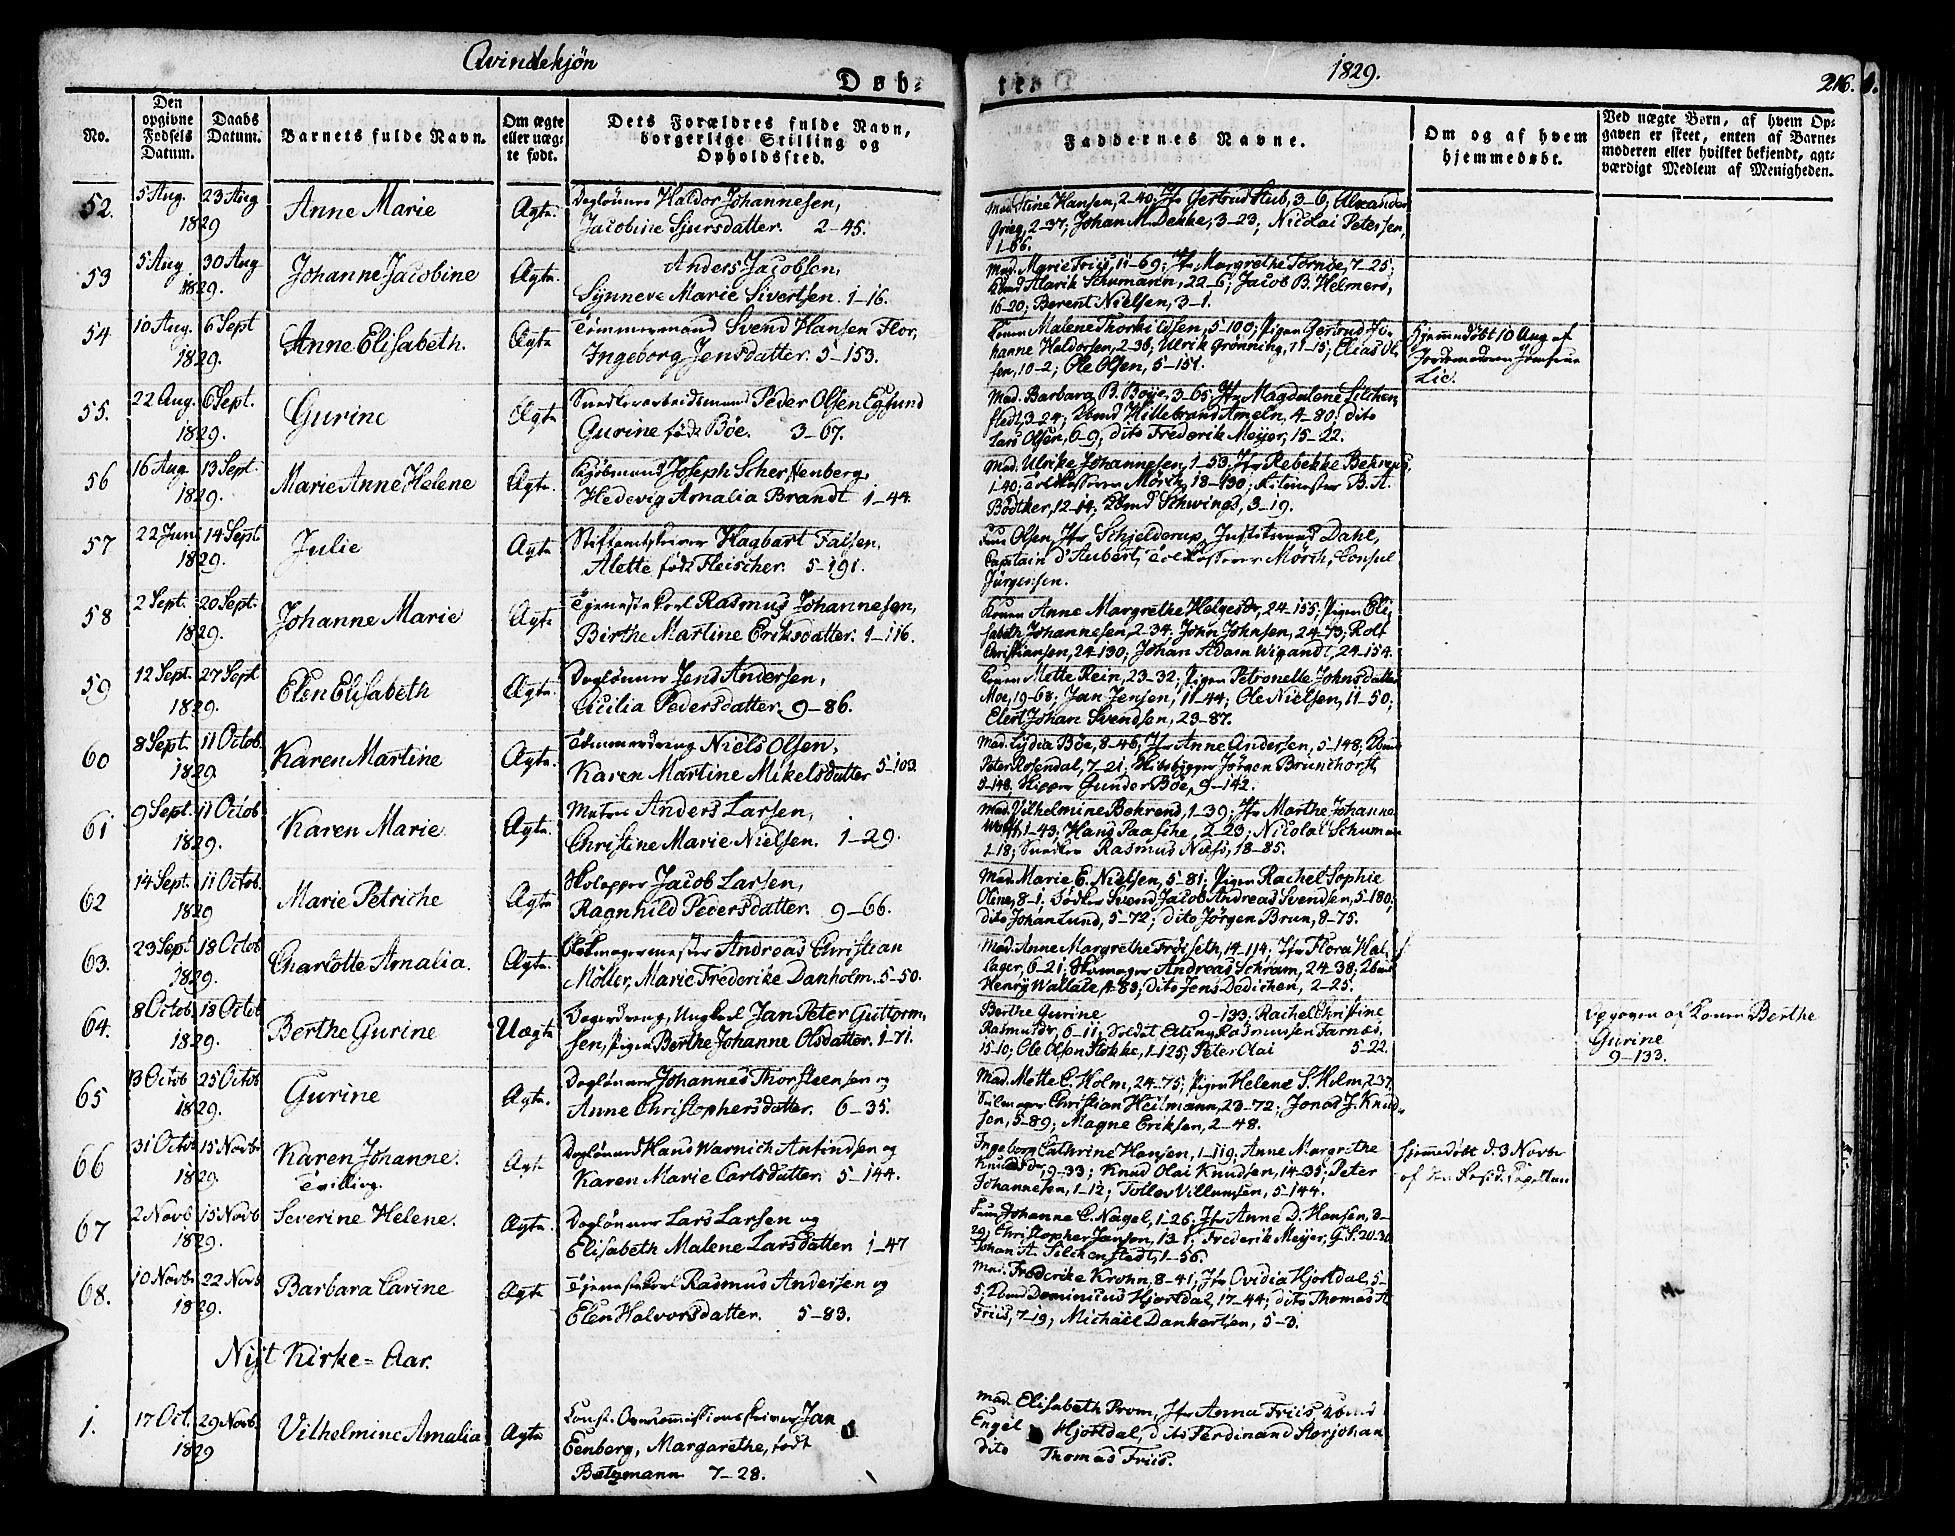 Qvindekjön
Døb:
1829.
216.
No.
Den opgivne Fødsels Datum.
Daabs Datum.
Barnets fulde Navn.
Om ægte eller uægte født.
Dets Forældres fulde Navn, borgerlige Stilling og Opholdssted.
Faddernes Navne.
Om og af hvem hjemmedøbt.
Ved uægte Børn, af hvem Opgaven er skeet, enten af Barnemoderen eller hvilket bekjendt, agtværdigt Medlem af Menigheden.
52. 5 Aug. 23 Aug 1829 Anne Marie Ægte. Daglönner Haldor Johannesen,
Jacobine Sjursdatter. 2-45.
Mad. Stine Hansen, 2-40; Jfr Gertrud Stub, 3-6, Alexander
Grieg, 2-37; Johan M. Dekke, 3-23; Nicolai Petersen,
1-66.
53 5 Aug. 30 Aug 1829. Johanne Jacobine Ægte. Anders Jacobsen,
Synneve Marie Sivertsen. 1-16.
Mad. Marie Friis, 11-69; Jfr Margrethe Tornöe, 7-25;
Alarik Schumann, 22-6; Jacob B. Helmers,
16-20; Berent Nielsen, 3-1.
54 10 Aug. 6 Sept 1829. Anne Elisabeth. Ægte Tömmermand Svend Hansen Flor,
Ingeborg Jensdatter. 5-153.
Konen Malene Thorkildsen, 5-100; Pigen Gertrud Jo-
hanne Haldorsen, 2-96, Ulrik Grönning, 11-15; Elias Ol-
sen, 10-2; Ole Olsen, 5-151.
Hjemmedöbt 10 Aug. af
Jordemoderen Jensine
Lie.
55. 22 Aug. 6 Sept. 1829. Gurine Ægte Peder Olsen Egesund
Gurine födt Böe. 3-67.
Mad. Barbara B. Böje, 3-65; Jfr Magdalene Silchen-
stedt, 3-24; Hillebrand Ameln, 4-80; dito
Lars Olsen, 6-9; dito Frederik Meyer, 15-22.
56 16 Aug. 13 Sept. 1829. Marie Anne Helene Ægte. Kjöbmand Joseph Scherstenberg,
Hedevig Amalia Brandt 1-44.
Mad. Ulrike Johannesen, 1-53, Jfr Rebekke Behrens,
1-40; Toldkasserer Mörch, 18-130; B. A.
Bödtker, 12-14; Schwings, 3-19.
57 22 Juni 14 Sept 1829. Julie Ægte Stiftamtskriver Hagbart Falsen,
Alette födt Fleischer. 5-191.
Fru Olsen, Jfr Schjelderup, Justitsraad Dahl,
Capitain d'Aubert, Toldkasserer Mörch, Consul
Jürgensen.
58 2 Sept. 20 Sept. 1829. Johanne Marie Ægte Tjenestekarl Rasmus Johannesen,
Birthe Martine Eriksdatter. 1-116.
Konen Anne Margrethe Helgesdr, 24-155; Pigen Eli-
sabeth Johannesen, 2-34; John Johnsen, 24-73; Rolf
Christiansen, 24-130; Johan Adam Wigandt, 24-154.
59 12 Sept. 27 Sept 1829. Elen Elisabeth Ægte. Daglönner Jens Andersen,
Cicilia Pedersdatter. 9-86.
Konen Mette Rein, 23-32; Pigen Petronelle Johnsdatter
Moe, 19-68; Jan Jensen, 11-44; Ole Nielsen, 11-50;
Elert Johan Svendsen, 23-87.
60 8 Sept. 11 Octob. 1829. Karen Martine Ægte. Tömmerdreng Niels Olsen,
Karen Martine Mikelsdatter 5-103.
Mad. Lydia Böe, 8-46; Jfr Anne Andersen, 5-148,
Peter Rosendal, 7-21; Jörgen Brunchorst,
9-148, Skipper Gunder Böe, 9-142.
61 9 Sept. 11 Octob 1829. Karen Marie. Ægte. Anders Larsen,
Christine Marie Nielsen. 1-29.
Mad. Vilhelmine Bohrend, 1-39; Jfr Marthe Johanne
1-43; Hans Paasche, 2-23; Nicolai Schuman
1-18; Snedker Rasmus Næss, 18-85.
62 14 Sept. 11 Octob. 1829 Marie Petriche Ægte Jacob Larsen,
Ragnhild Pedersdatter. 9-66.
Mad. Marie E. Nielsen, 5-81; Pigen Rachel Sophie
Oline, 8-1; Bödker Svend Jacob Andreas Svendsen, 5-180,
dito Johan Lund, 5-72; dito Jörgen Brun, 8-75.
63. 23 Sept 18 Octob 1829. Charlotte Amalia. Ægte. Andreas Christian
Möller, Marie Frederike Danholm. 5-50.
Mad. Anne Margrethe Fröiseth, 14-114; Jfr Flora Wal-
lager, 6-21; Skomager Andreas Schram, 24-38;
Henry Wallace, 83; dito Jens Dedichen, 2-25.
64. 8 Octob. 18 Octob 1829. Berthe Gurine Uægte Bagerdreng, Ungkarl Jan Peter Guttorm-
sen, Pigen Berthe Johanne Olsdatter. 1-71.
Berthe Gurine 9-133; Rachel Christine
Rasmusdr, 6-11; Soldat Erling Rasmussen Farnæs,
15-10; Ole Olsen Stokke, 1-125; Peter Olai 5-22.
Opgaven af Konen Berthe
Gurine
9-133.
65 13 Octob 25 Octob 1829. Gurine Ægte. Daglönner Johannes Thorsteensen og
Anne Christophersdatter. 6-35.
Mad. Mette C. Holm, 24-75; Pigen Helene S. Holm, 2-37;
Seilmager Christian Heilmann, 23-72; Jonas J. Knud-
sen, 5-89; Magne Eriksen, 2-48.
66 31 Octob 15 Novbr 1829. Karen Johanne.
Tvilling. Ægte Daglönner Hans Warnich Anfindsen og
Karen Marie Carlsdatter. 5-144.
Ingeborg Cathrine Hansen, 1-119; Anne Margrethe
Knudsdr, 9-33; Knud Olai Knudsen, 14-35; Peter
Johannesen, 1-12; Tollev Villumsen, 5-144.
Hjemmedöbt d. 3 Novbr
af den Resid. Capellan
67 2 Novb 15 Novb 1829. Severine Helene. Ægte. Daglönner Lars Larsen og
Elisabeth Malene Larsdatter. 1-47
Johanne C. Nagel, 1-26; Jfr Anne D. Hansen, 3-
29; Christopher Jansen, 13-1; Frederik Meyer, G. S. 20-30
Johan A. Silchenstedt, 1-56.
68. 10 Novbr 22 Novb 1829. Barbara Carine Ægte Tjenestekarl Rasmus Andersen og
Elen Halvorsdatter. 5-83.
Mad. Frederike Krohn, 8-41; Jfr Ovidia Hjortdal, 5-
5; Dominicus Hjortdal, 17-44; dito Thomas A
Friis, 7-19; Michael Dankertsen, 5-3.
Nyt Kirke=Aar.
1. 17 Oct. 29 Novb. 1829 Vilhelmine Amalia Ægte Const. Overcommissionsskriver Jan
Eenberg, Margarethe, födt
Batzmann 7-28.
Mad. Elisabeth Prom, Jfr Anna Friis,
Engel Hjortdal, dito Ferdinand Storjohan
dito Thomas Friis.